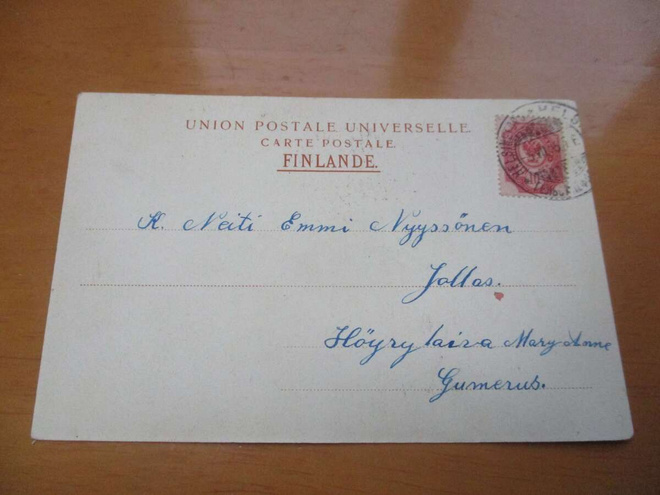 UNION POSTALE UNIVERSELLE.
CARTE POSTALE.
FINLANDE.
K. Neiti Emmi Nyyssönen
Jollas.
Höyrylaiva Mary-Anne
Gumerus.